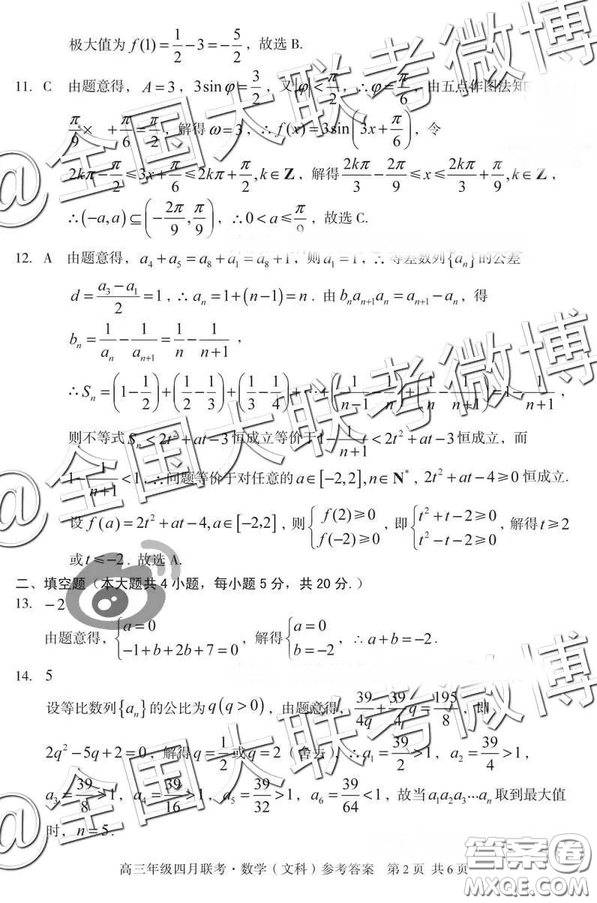 极大值为 f(1)=1/2-3=-5/2，故选 B.
11. C 由题意得，A=3，3sinφ=3/2，又|φ|<π/2，∴φ=π/6，由五点作图法知
π/9× +π/6=π/2，解得 ω=3，∴f(x)=3sin(3x+π/6)，令
2kπ-π/2≤3x+π/6≤2kπ+π/2,k∈Z，解得 2kπ/3-2π/9≤x≤2kπ/3+π/9,k∈Z，
∴(-a,a)⊆(-2π/9,π/9)，∴0<a≤π/9，故选 C.
12. A 由题意得，a₄+a₅=a₈+a₁=a₈+1，则 a₁=1，∴等差数列{aₙ}的公差
d=(a₃-a₁)/2=1，∴aₙ=1+(n-1)=n．由 bₙaₙ₊₁aₙ=aₙ₊₁-aₙ，得
bₙ=1/aₙ-1/aₙ₊₁=1/n-1/(n+1)，
∴Sₙ=(1-1/2)+(1/2-1/3)+(1/3-1/4)+⋯+(1/(n-1)-1/n)+1/n-1/(n+1)=1-1/(n+1)，
则不等式 Sₙ<2t²+at-3 恒成立等价于 1-1/(n+1)<2t²+at-3 恒成立，而
1-1/(n+1)<1，∴问题等价于对任意的 a∈[-2,2],n∈N*，2t²+at-4≥0 恒成立.
设 f(a)=2t²+at-4,a∈[-2,2]，则{f(2)≥0 f(-2)≥0，即{t²+t-2≥0 t²-t-2≥0，解得 t≥2
或 t≤-2．故选 A.
二、填空题（本大题共 4 小题，每小题 5 分，共 20 分．）
13. -2
由题意得，{a=0 -1+b+2b+7=0，解得{a=0 b=-2，∴a+b=-2．
14. 5
设等比数列{aₙ}的公比为 q(q>0)，由题意得，39/4q+39/4 q=195/8，即
2q²-5q+2=0，解得 q=1/2 或 q=2（舍去），∴a₁=39/2>1，a₂=39/4>1，
a₃=39/8>1，a₄=39/16>1，a₅=39/32>1，a₆=39/64<1，故当 a₁a₂a₃⋯aₙ 取到最大值
时，n=5．
高三年级四月联考·数学（文科）参考答案 第 2 页 共 6 页
@全国大联考微博
@全国大联考微博
@全国大联考微博
答案圈
MXQE.COM